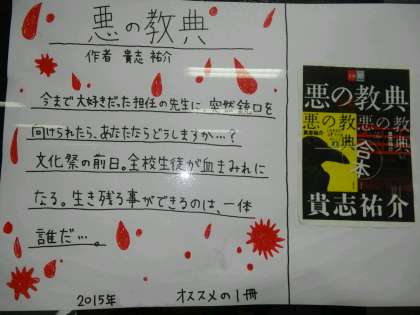 悪の教典
作者 貴志 祐介
今まで大好きだった担任の先生に、突然銃口を
向けられたら、あなたならどうしますか…?
文化祭の前日。全校生徒が血まみれに
なる。生き残る事ができるのは、一体
誰だ…。
2015年 オススメの1冊
悪の教典
悪の教典
悪の教典
合本
貴志祐介